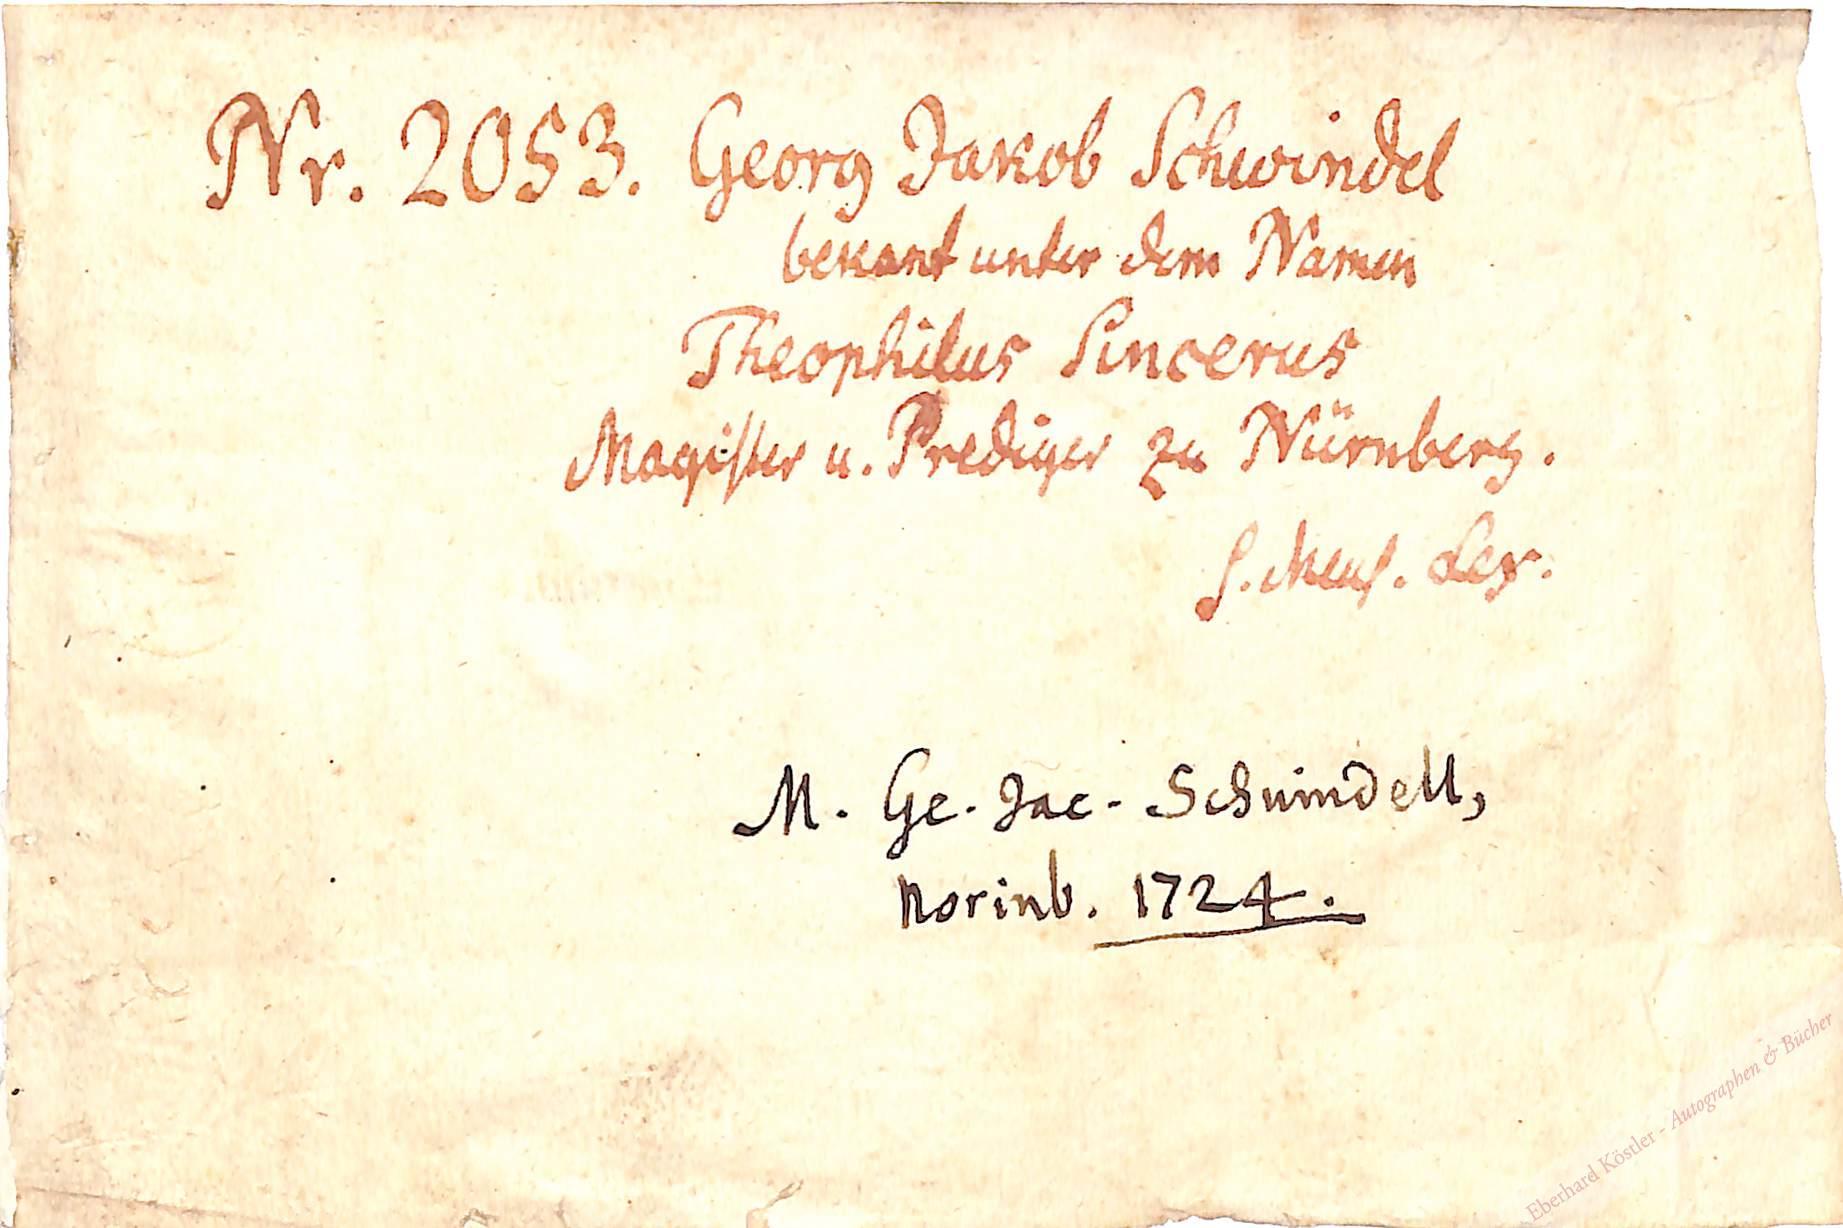 Nr. 2053. Georg Jakob Schwindel
bekant unter dem Namen
Theophilus Sincerus
Magister u. Prediger zu Nürnberg.
S. Meus. Lex.
M. Ge. Jac. Schwindell,
Norinb. 1724.
Eberhard Köstler - Autographen & Bücher